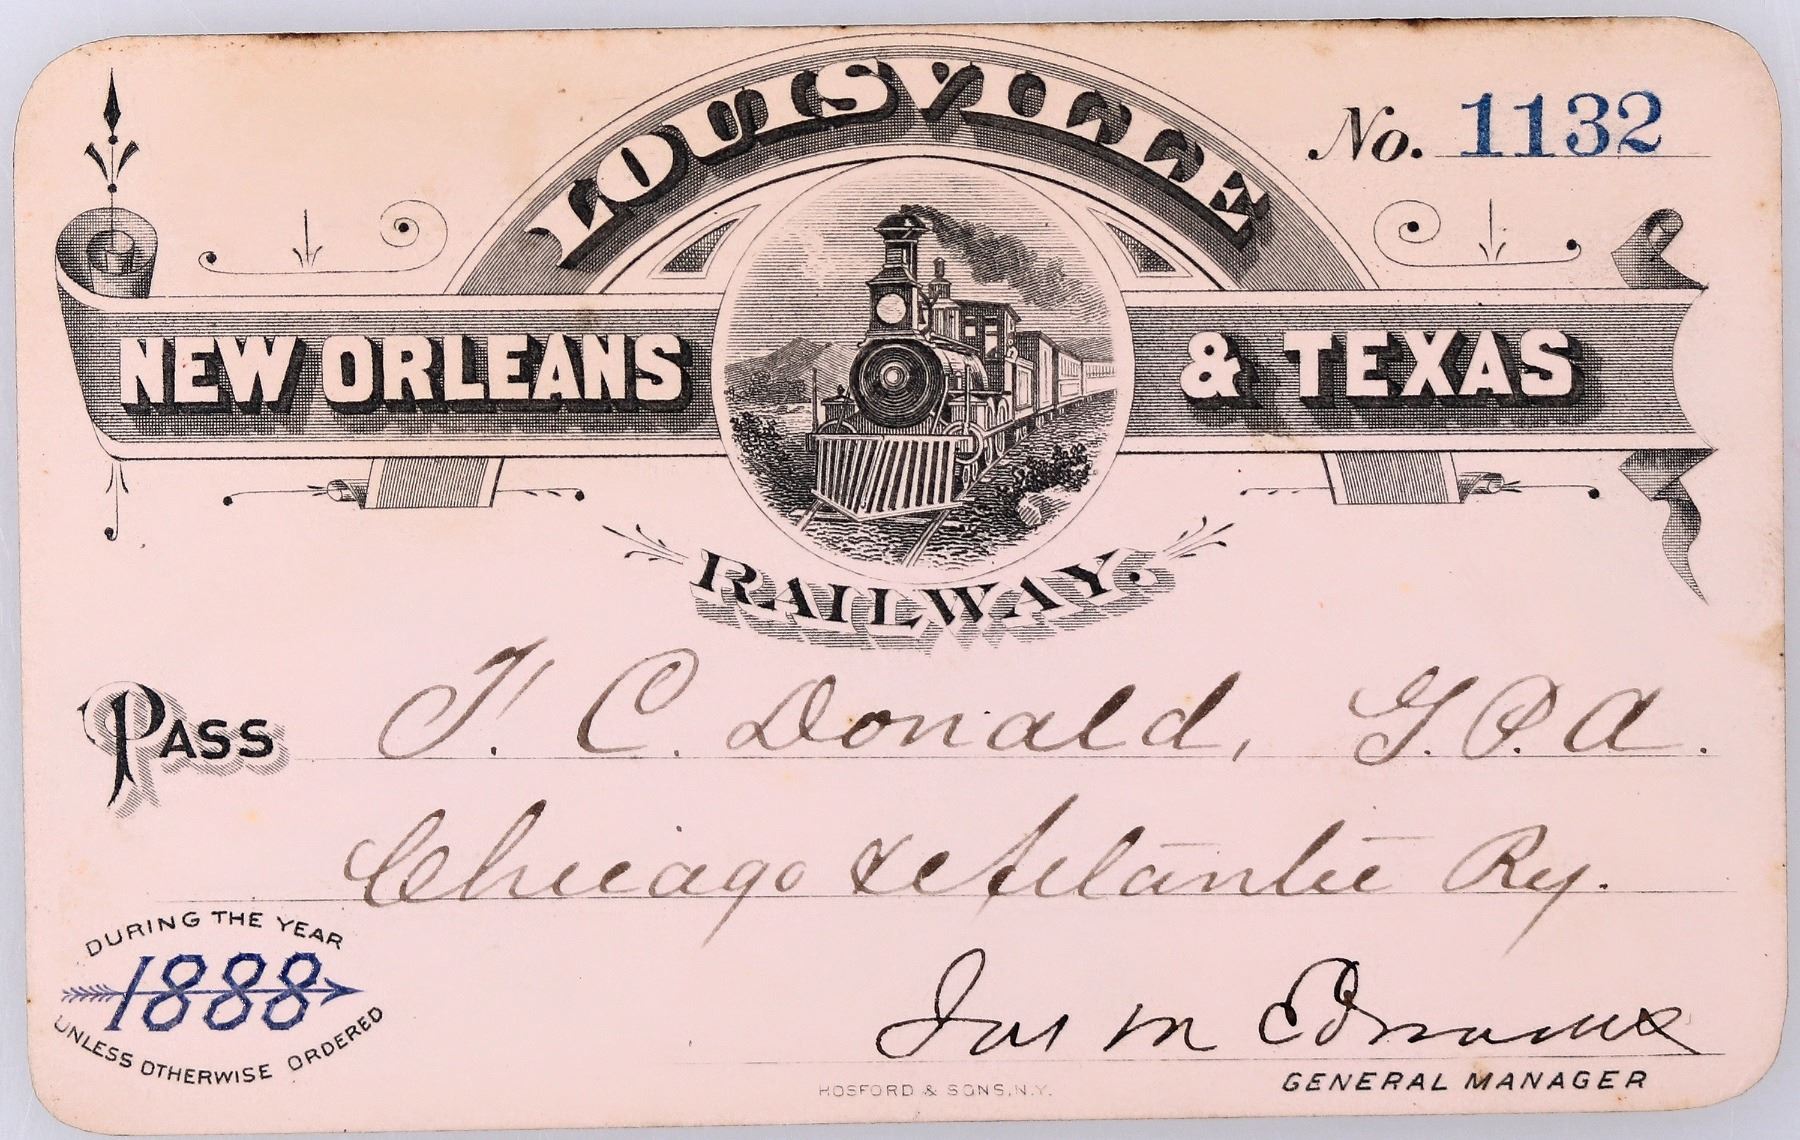 LOUISVILLE
No. 1132
NEW ORLEANS & TEXAS
RAILWAY.
PASS T. C. Donald, G. P. A.
Chicago & Atlantic Ry.
DURING THE YEAR
1888
UNLESS OTHERWISE ORDERED
Jas M Edwards
GENERAL MANAGER
HOSFORD & SONS, N.Y.